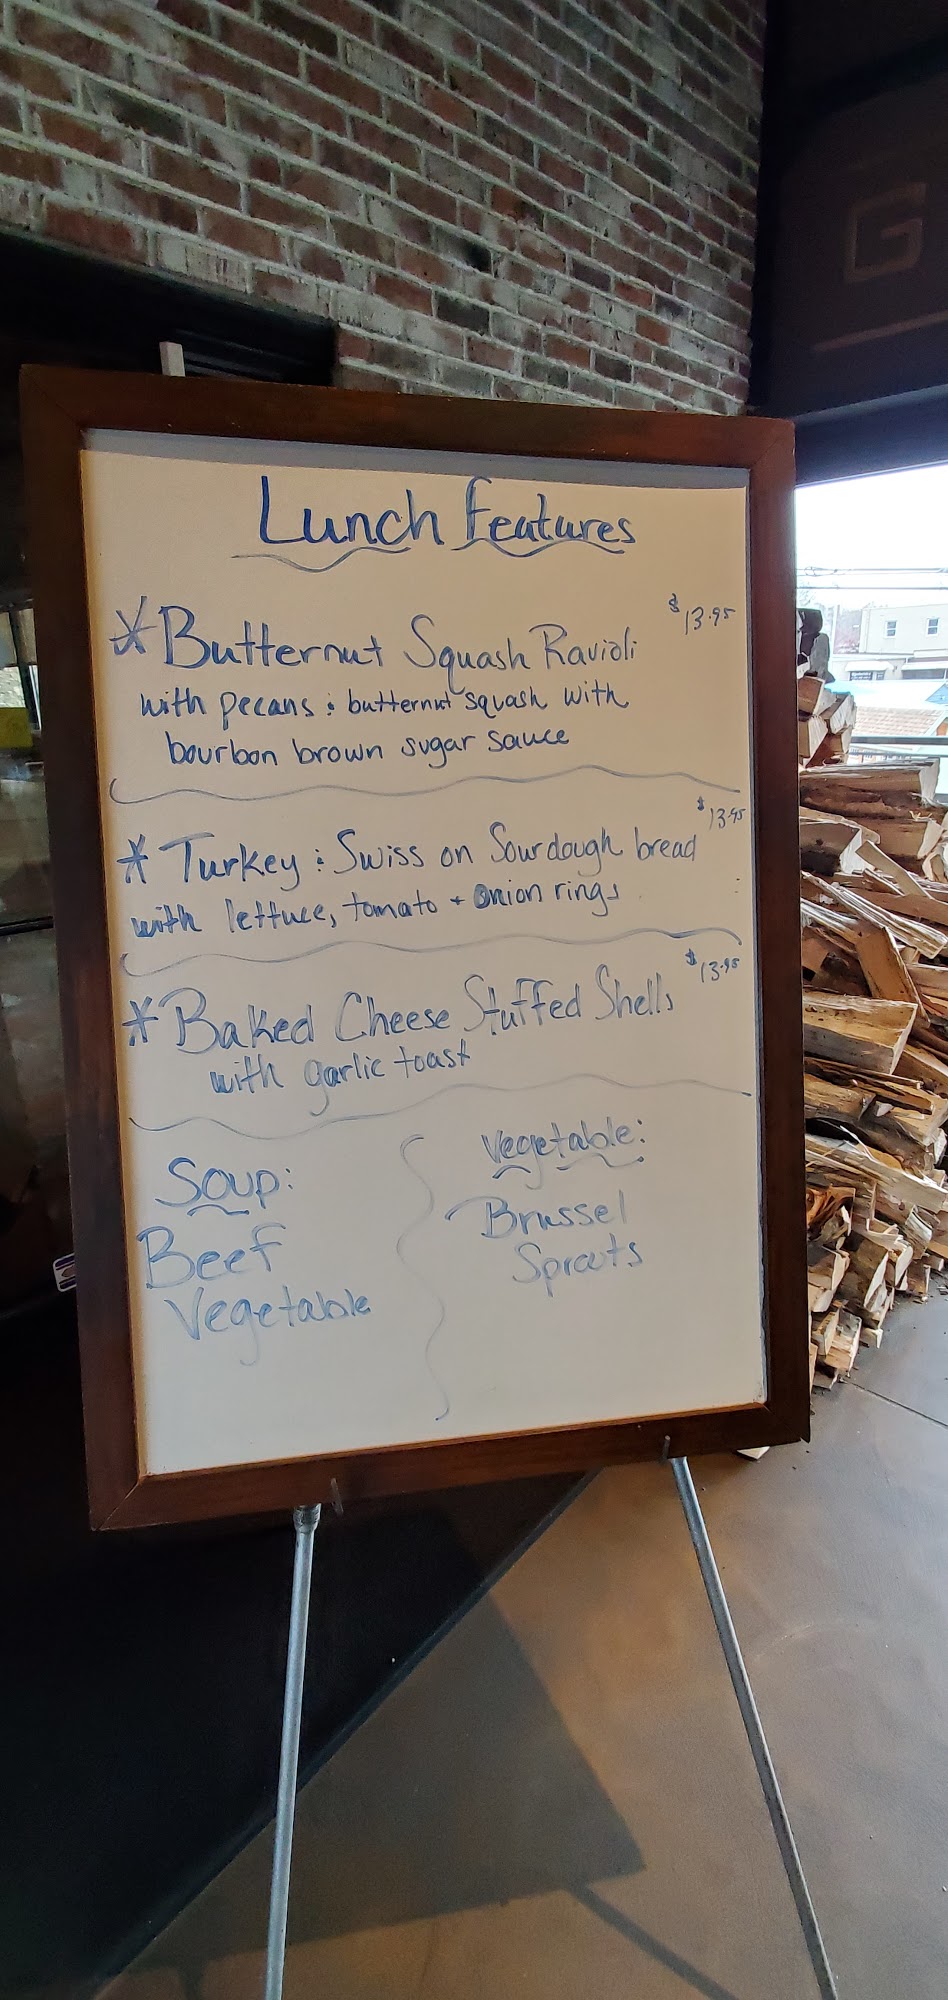 G
Lunch Features
* Butternut Squash Ravioli $13.95
with pecans & butternut squash with
bourbon brown sugar sauce
* Turkey & Swiss on Sourdough bread $13.95
with lettuce, tomato + onion rings
* Baked Cheese Stuffed Shells $13.95
with garlic toast
Soup:
Beef
Vegetable
Vegetable:
Brussel
Sprouts